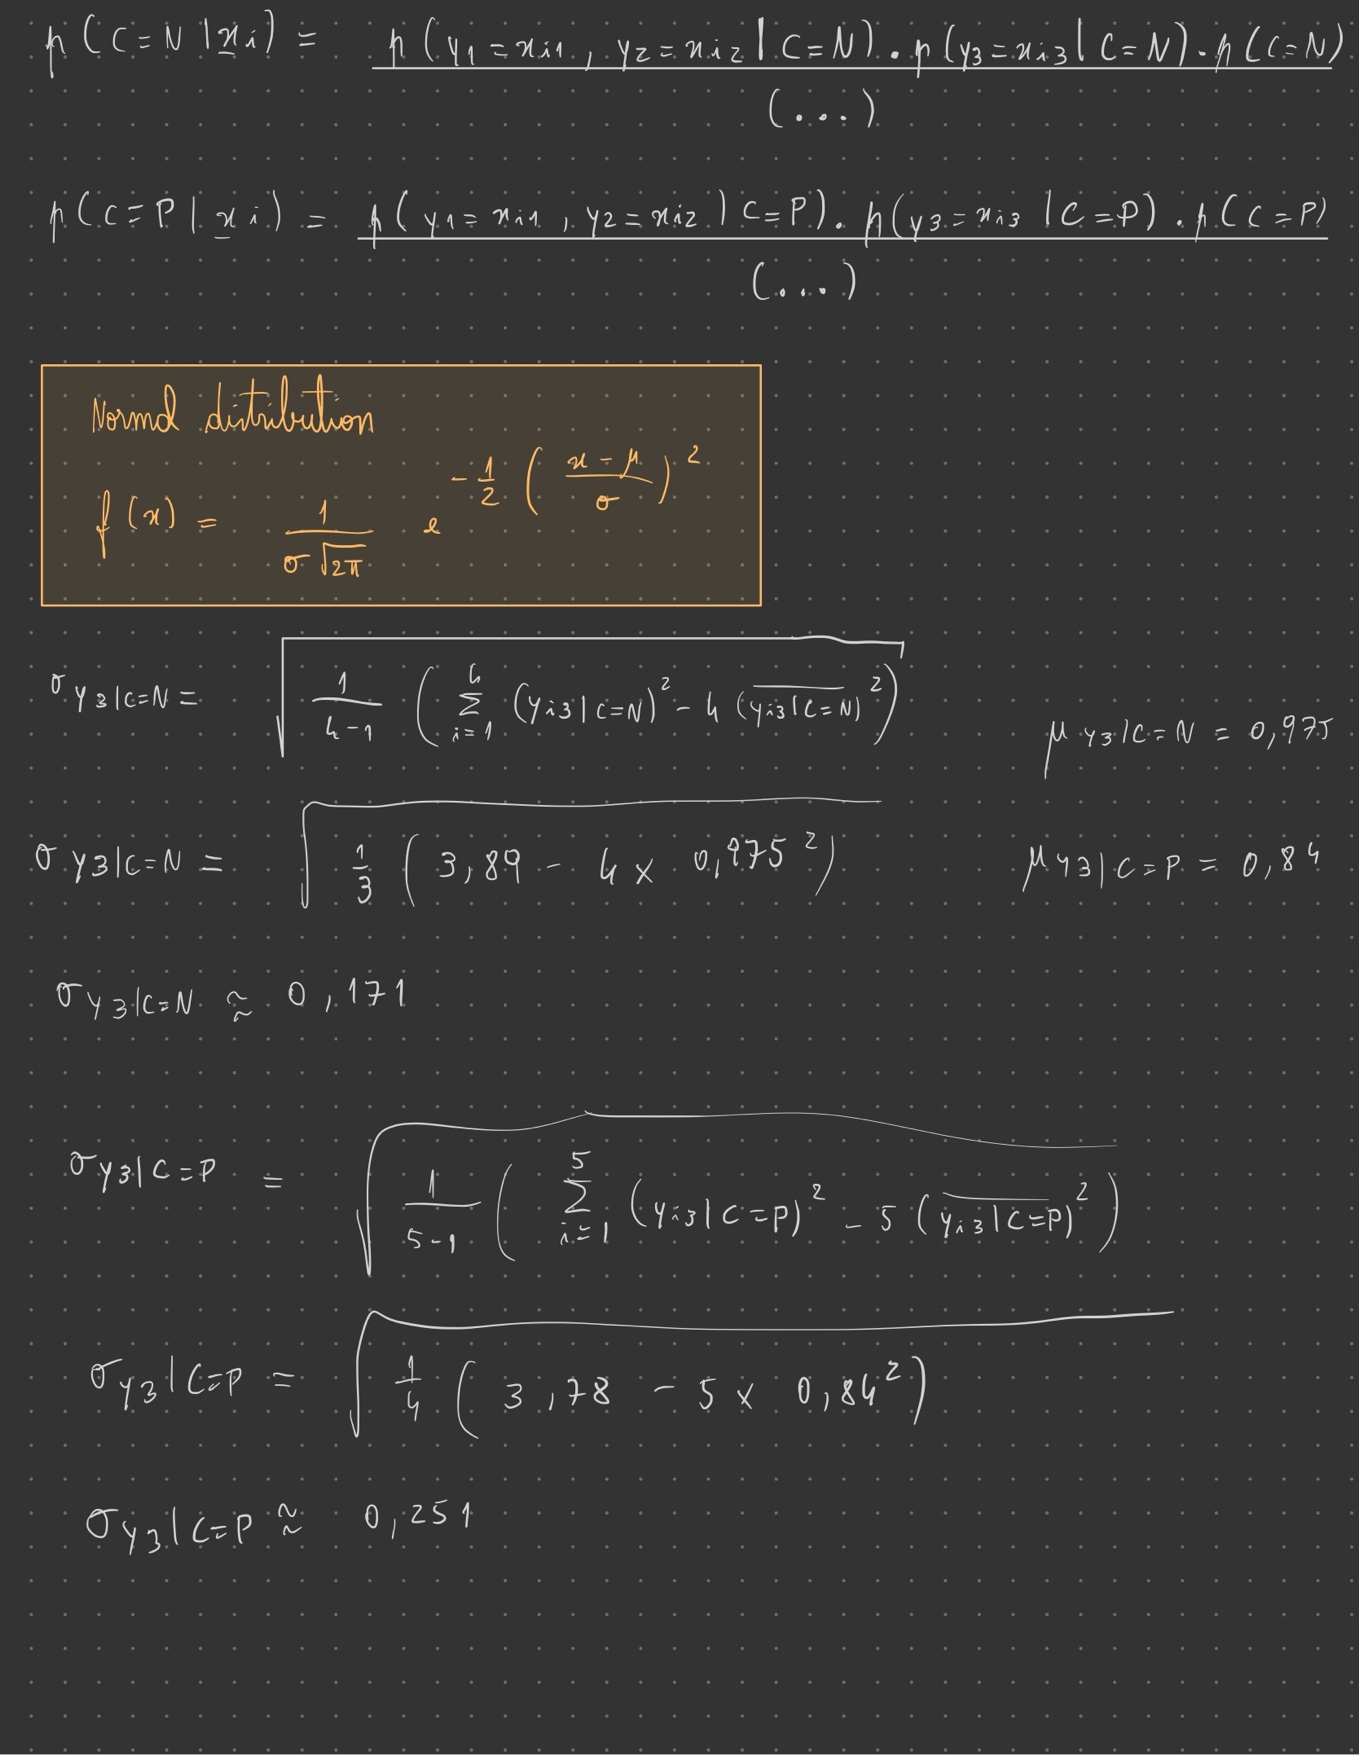 p(C=N|xi) = p(y1=xi1, y2=xi2|C=N).p(y3=xi3|C=N).p(C=N)
(...)
p(C=P|xi) = p(y1=xi1, y2=xi2|C=P).p(y3=xi3|C=P).p(C=P)
(...)
Normal distribution
f(x) = 1/(σ√2π) e^(-1/2 ((x-μ)/σ)^2)
σ y3|C=N = √(1/(4-1) (Σ_{i=1}^{4} (yi3|C=N)^2 - 4 (\overline{yi3|C=N})^2))
μ y3|C=N = 0,975
σ y3|C=N = √(1/3 (3,89 - 4 x 0,975^2))
μ y3|C=P = 0,84
σ y3|C=N ≈ 0,171
σ y3|C=P = √(1/(5-1) (Σ_{i=1}^{5} (yi3|C=P)^2 - 5 (\overline{yi3|C=P})^2))
σ y3|C=P = √(1/4 (3,78 - 5 x 0,84^2))
σ y3|C=P ≈ 0,251